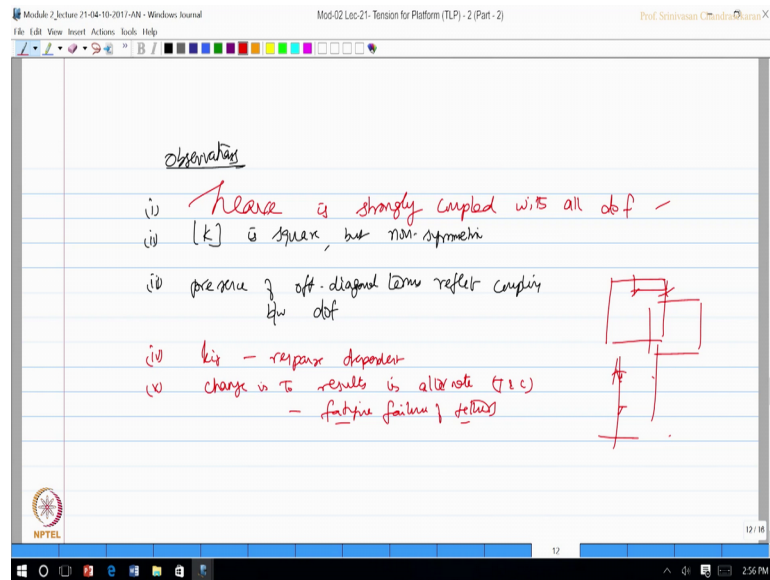 Module 2_lecture 21-04-10-2017-AN - Windows Journal
Mod-02 Lec-21- Tension for Platform (TLP) - 2 (Part - 2)
Prof. Srinivasan Chandrasekaran
File Edit View Insert Actions Tools Help
Observations
(i) heave is strongly coupled with all dof
(ii) [K] is square, but non-symmetric
(iii) presence of off-diagonal terms reflect coupling
b/w dof
(iv) kij - response dependent
(v) change in To results is alternote (T & C)
- fatigue failure of tethers
NPTEL
12 / 16
12
2:56 PM